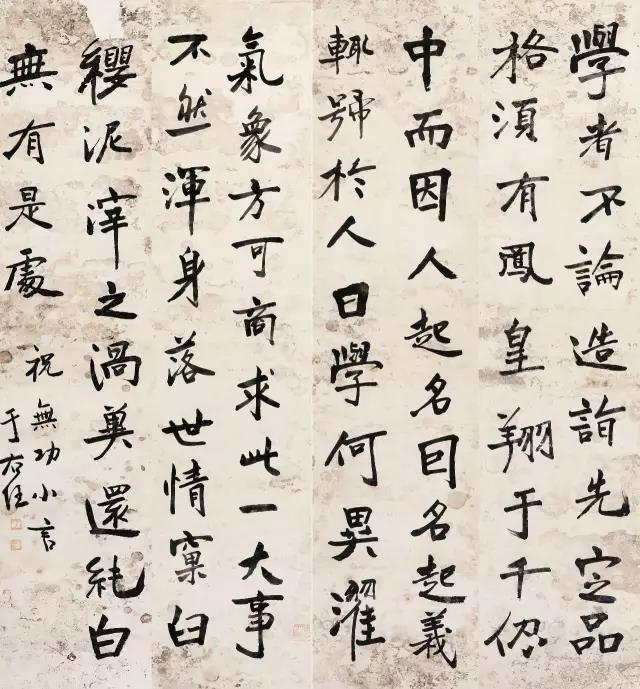 學者不論造詣先定品
格須有鳳皇翔于千仞
中而因人起名囙名起義
輒號於人曰學何異濯
氣象方可商求此一大事
不然渾身落世情窠臼
纓泥滓之渦冀還純白
無有是處
祝無功小言
于右任